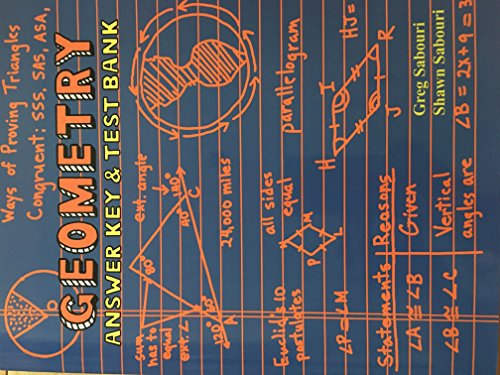 Ways of Proving Triangles
Congruent: SSS, SAS, ASA,
GEOMETRY
ANSWER KEY & TEST BANK
sum
has to
equal
ext. ∠
ext. angle
80°
40°
140°
120°
A
C
24,000 miles
Euclid's 10
postulates
all sides
equal
P
M
L
∠P≅∠M
parallelogram
H
I
J
R
HJ=
Statements
Reasons
∠A ≅ ∠B
Given
∠B ≅ ∠C
Vertical
angles are
Greg Sabouri
Shawn Sabouri
∠B = 2x+9 = 3